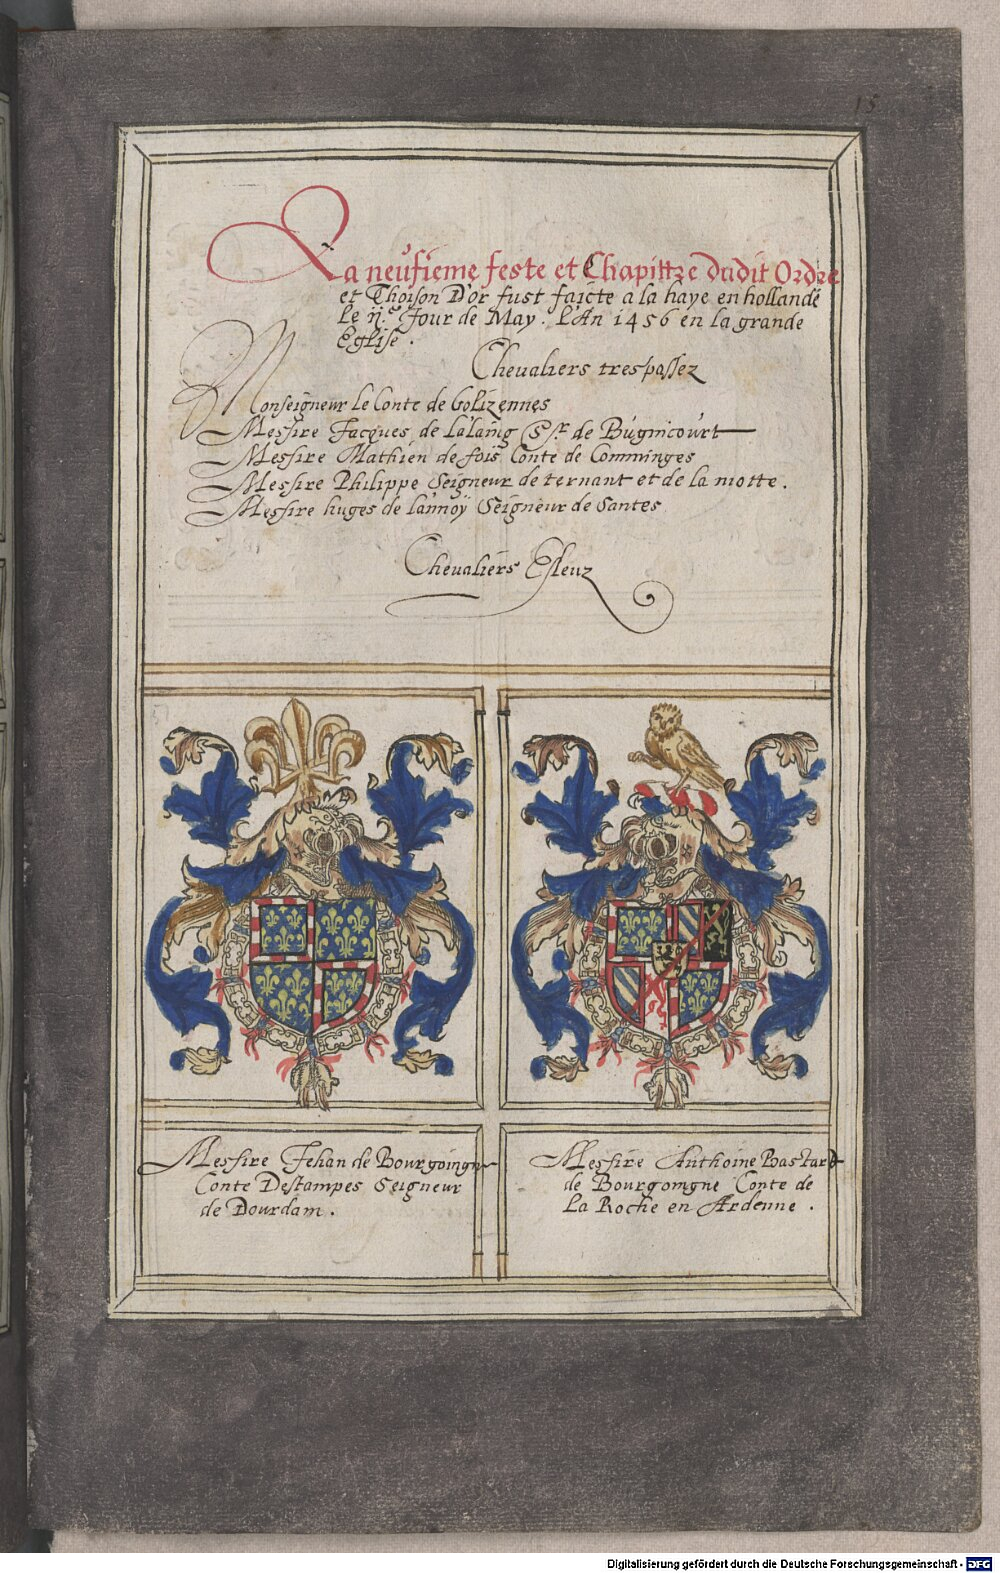 15
La neufieme feste et Chapittre dudit Ordre
et Thoison D'or fust faicte a la haye en hollande
le ij.e Jour de May. L'An 1456 en la grande
Eglise.
Chevaliers trespassez
Monseigneur le Conte de Golizennes
Messire Jacques de Lalaing Sr. de Bugnicourt
Messire Mathieu de fois Conte de Comminges
Messire Philippe Seigneur de ternant et de la motte.
Messire huges de lannoÿ Seigneur de Santes
Chevaliers Esleuz
Messire Jehan de Bourgoingne
Conte Destampes Seigneur
de Dourdam.
Messire Anthoine Bastard
de Bourgoingne Conte de
La Roche en Ardenne.
Digitalisierung gefördert durch die Deutsche Forschungsgemeinschaft - DFG